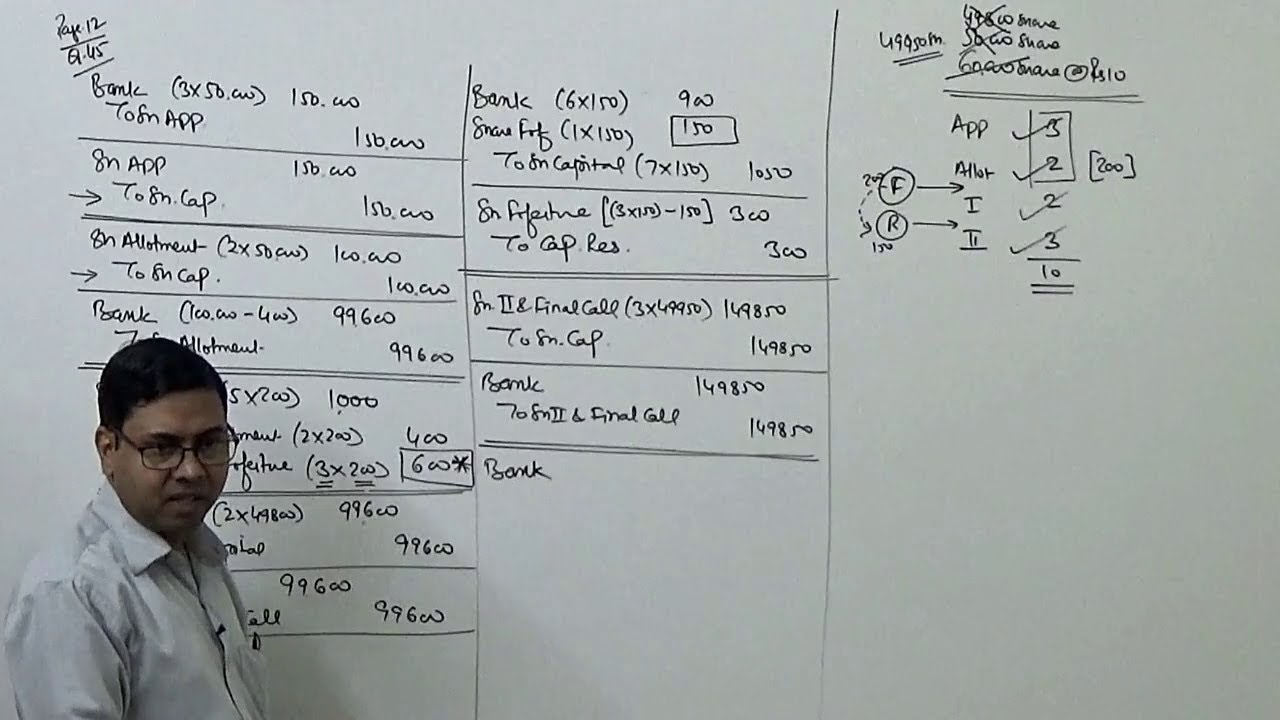 Page.12
Q.45
Bank (3x50,000) 150,000
To Sh APP 150,000
Sh APP 150,000
→ To Sh. Cap. 150,000
Sh Allotment (2x50,000) 100,000
→ To Sh Cap. 100,000
Bank (100,000-400) 99600
Allotment 99600
(5x200) 1,000
tment (2x200) 400
orfeiture (3x200) 600*
(2x49800) 99600
pital 99600
99600
Call 99600
Bank (6x150) 900
Share Forf (1x150) 150
To Sh Capital (7x150) 1050
Sh Forfeiture [(3x150)-150] 300
To Cap. Res. 300
Sh. II & Final Call (3x49950) 149850
To Sh. Cap 149850
Bank 149850
To Sh II & Final Call 149850
Bank
49800 Share
49950 Sh. 50,000 Share
60,000 Share @ Rs10
App ✓ 3
Allot ✓ 2 [200]
200 F → I ✓ 2
R → II ✓ 3
150
10